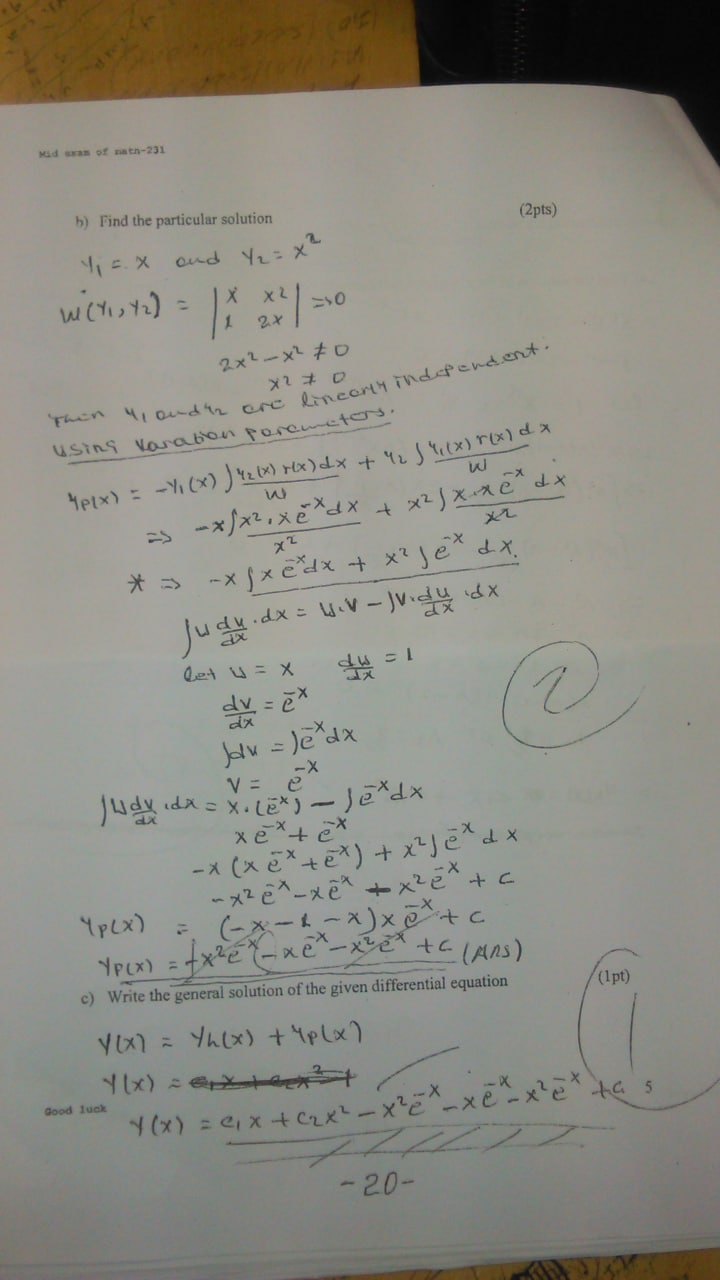 Mid exam of math-231
b) Find the particular solution (2pts)
y₁ = x and y₂ = x²
W(y₁, y₂) = | x x² | => 0
| 1 2x |
2x² - x² ≠ 0
x² ≠ 0
Then y₁ and y₂ are linearly independent.
Using Varation parameters.
yp(x) = -y₁(x) ∫ y₂(x) r(x) dx / W + y₂ ∫ y₁(x) r(x) dx / W
=> -x ∫ x² · x e^-x dx / x² + x² ∫ x · x e^-x dx / x²
* => -x ∫ x e^-x dx + x² ∫ e^-x dx.
∫ u dv/dx · dx = u.v - ∫ v. du/dx · dx
let u = x du/dx = 1
dv/dx = e^-x
2
∫ dv = ∫ e^-x dx
v = e^-x
∫ u dv/dx · dx = x · (e^-x) - ∫ e^-x dx
x e^-x + e^-x
-x (x e^-x + e^-x) + x² ∫ e^-x dx
-x² e^-x - x e^-x + x² e^-x + c
yp(x) = (-x - 1 - x) x e^-x + c
yp(x) = -x² e^-x - x e^-x - x² e^-x + c (Ans)
c) Write the general solution of the given differential equation (1pt)
y(x) = yh(x) + yp(x)
1
y(x) = c₁x + c₂x² +
Good luck
5
y(x) = c₁x + c₂x² - x² e^-x - x e^-x - x² e^-x + c
-20-